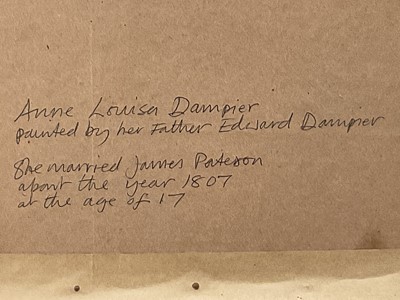 Anne Louisa Dampier
painted by her Father Edward Dampier
She married James Paterson
about the year 1807
at the age of 17